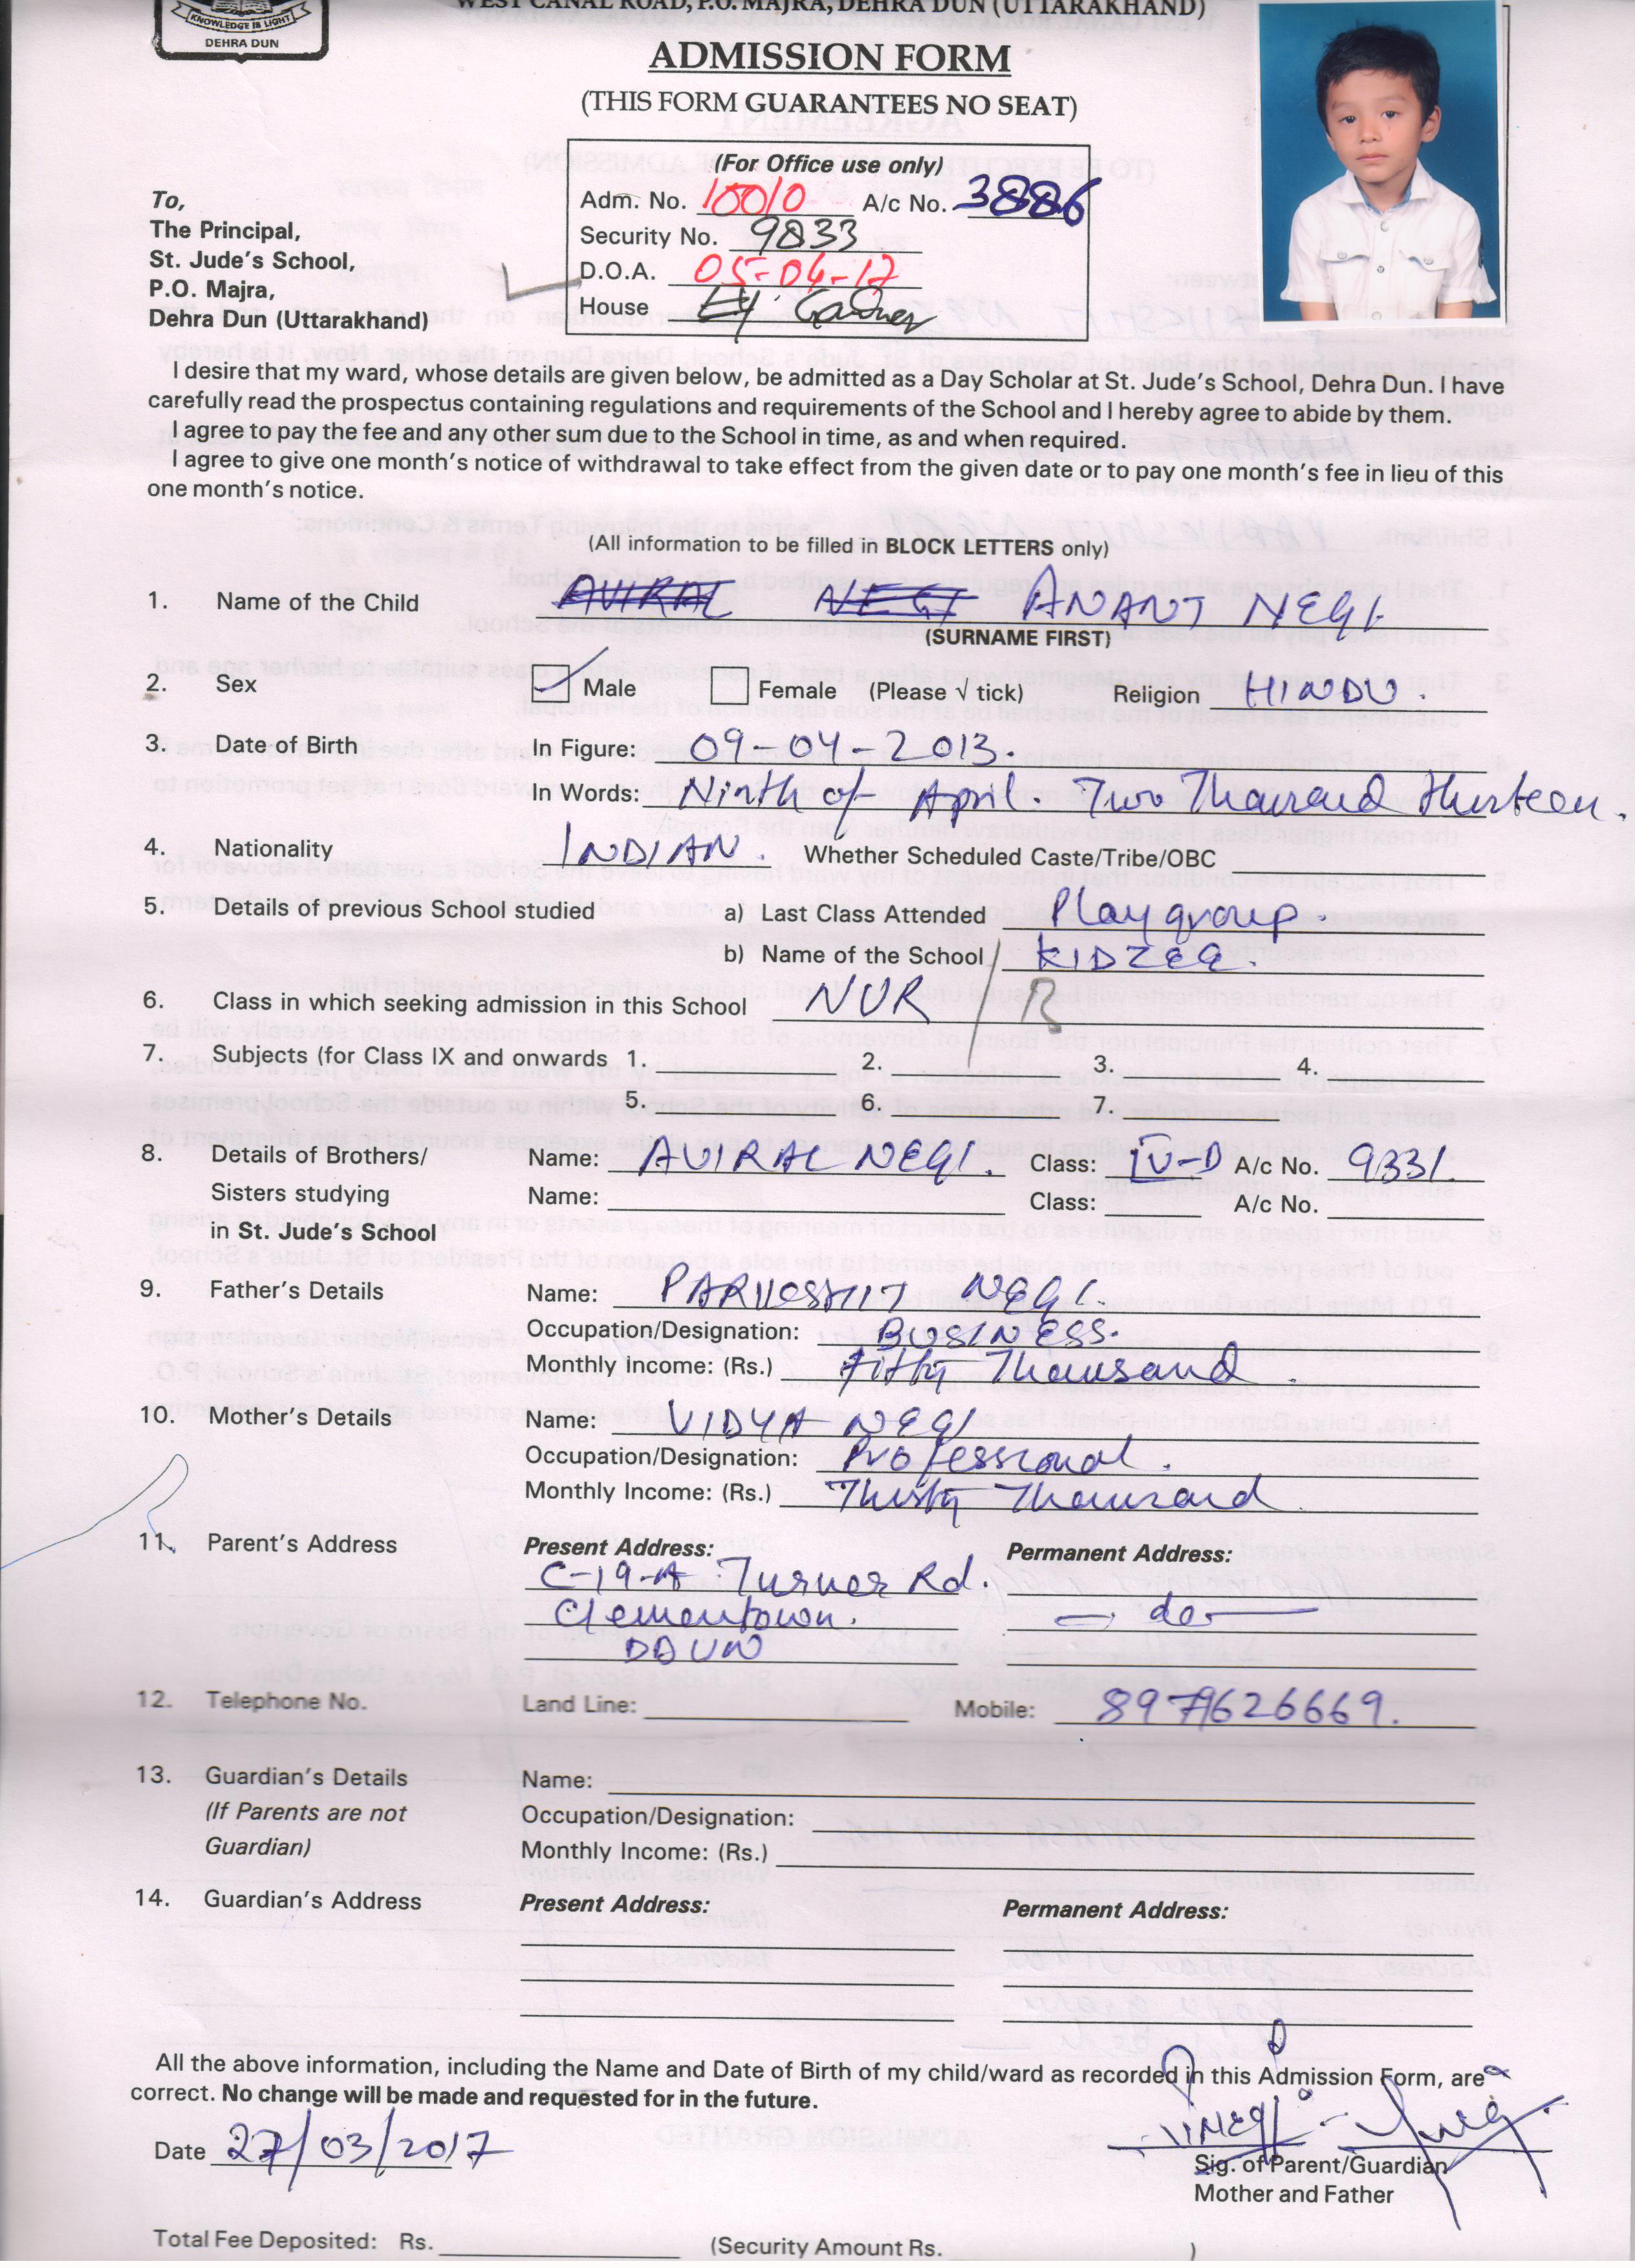 WEST CANAL ROAD, P.O. MAJRA, DEHRA DUN (UTTARAKHAND)
KNOWLEDGE IS LIGHT
DEHRA DUN
ADMISSION FORM
(THIS FORM GUARANTEES NO SEAT)
(For Office use only)
Adm. No. 10010 A/c No. 3886
Security No. 9833
D.O.A. 05-04-17
House
To,
The Principal,
St. Jude's School,
P.O. Majra,
Dehra Dun (Uttarakhand)
I desire that my ward, whose details are given below, be admitted as a Day Scholar at St. Jude's School, Dehra Dun. I have
carefully read the prospectus containing regulations and requirements of the School and I hereby agree to abide by them.
I agree to pay the fee and any other sum due to the School in time, as and when required.
I agree to give one month's notice of withdrawal to take effect from the given date or to pay one month's fee in lieu of this
one month's notice.
(All information to be filled in BLOCK LETTERS only)
1. Name of the Child AVIRAL NEGI ANANT NEGI
(SURNAME FIRST)
2. Sex Male Female (Please √ tick) Religion HINDU.
3. Date of Birth In Figure: 09-04-2013.
In Words: Ninth of April. Two Thousand thirteen.
4. Nationality INDIAN. Whether Scheduled Caste/Tribe/OBC
5. Details of previous School studied a) Last Class Attended Play group.
b) Name of the School KIDZEE.
6. Class in which seeking admission in this School NUR / B
7. Subjects (for Class IX and onwards 1. 2. 3. 4.
5. 6. 7.
8. Details of Brothers/ Name: AVIRAL NEGI. Class: IV-D A/c No. 9331.
Sisters studying Name: Class: A/c No.
in St. Jude's School
9. Father's Details Name: PARIKSHIT NEGI.
Occupation/Designation: BUSINESS.
Monthly Income: (Rs.) Fifty Thousand.
10. Mother's Details Name: VIDYA NEGI
Occupation/Designation: Professional.
Monthly Income: (Rs.) Thirty Thousand
11. Parent's Address Present Address: Permanent Address:
C-19-A Turner Rd.
Clementown. — do —
DDUN
12. Telephone No. Land Line: Mobile: 8979626669.
13. Guardian's Details Name:
(If Parents are not Occupation/Designation:
Guardian) Monthly Income: (Rs.)
14. Guardian's Address Present Address: Permanent Address:
All the above information, including the Name and Date of Birth of my child/ward as recorded in this Admission Form, are
correct. No change will be made and requested for in the future.
Date 27/03/2017
Sig. of Parent/Guardian
Mother and Father
Total Fee Deposited: Rs. (Security Amount Rs. )